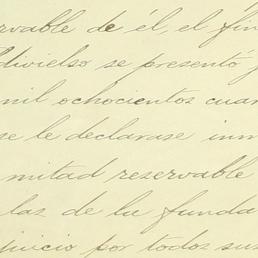 rvable de él, el fin
divielso se presentó
mil ochocientos cuar
se le declarase inm
mitad reservable
las de la funda
juicio por todos sus